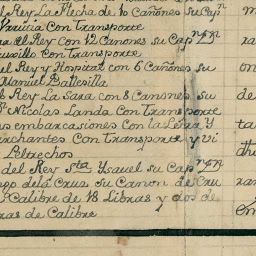 el Rey La Flecha de 10 Cañones su Capn
Urrutia Con Transporte
a del Rey Con 12 Canones su Capn
urillo Con Transporte
el Rey y Hospital con 6 Cañones su
Manuel Ballesilla
l Rey La Sara con 8 Canones su
Nicolas Landa Con Transporte
as embarcasiones Con la Letra Y
erchantes Con Transporte y Vi
Peltrechos
del Rey Sta Ysavel su Capn
ego dela Cruz su Canon de Cru
Calibre de 18 Libras y dos de
ras de Calibre